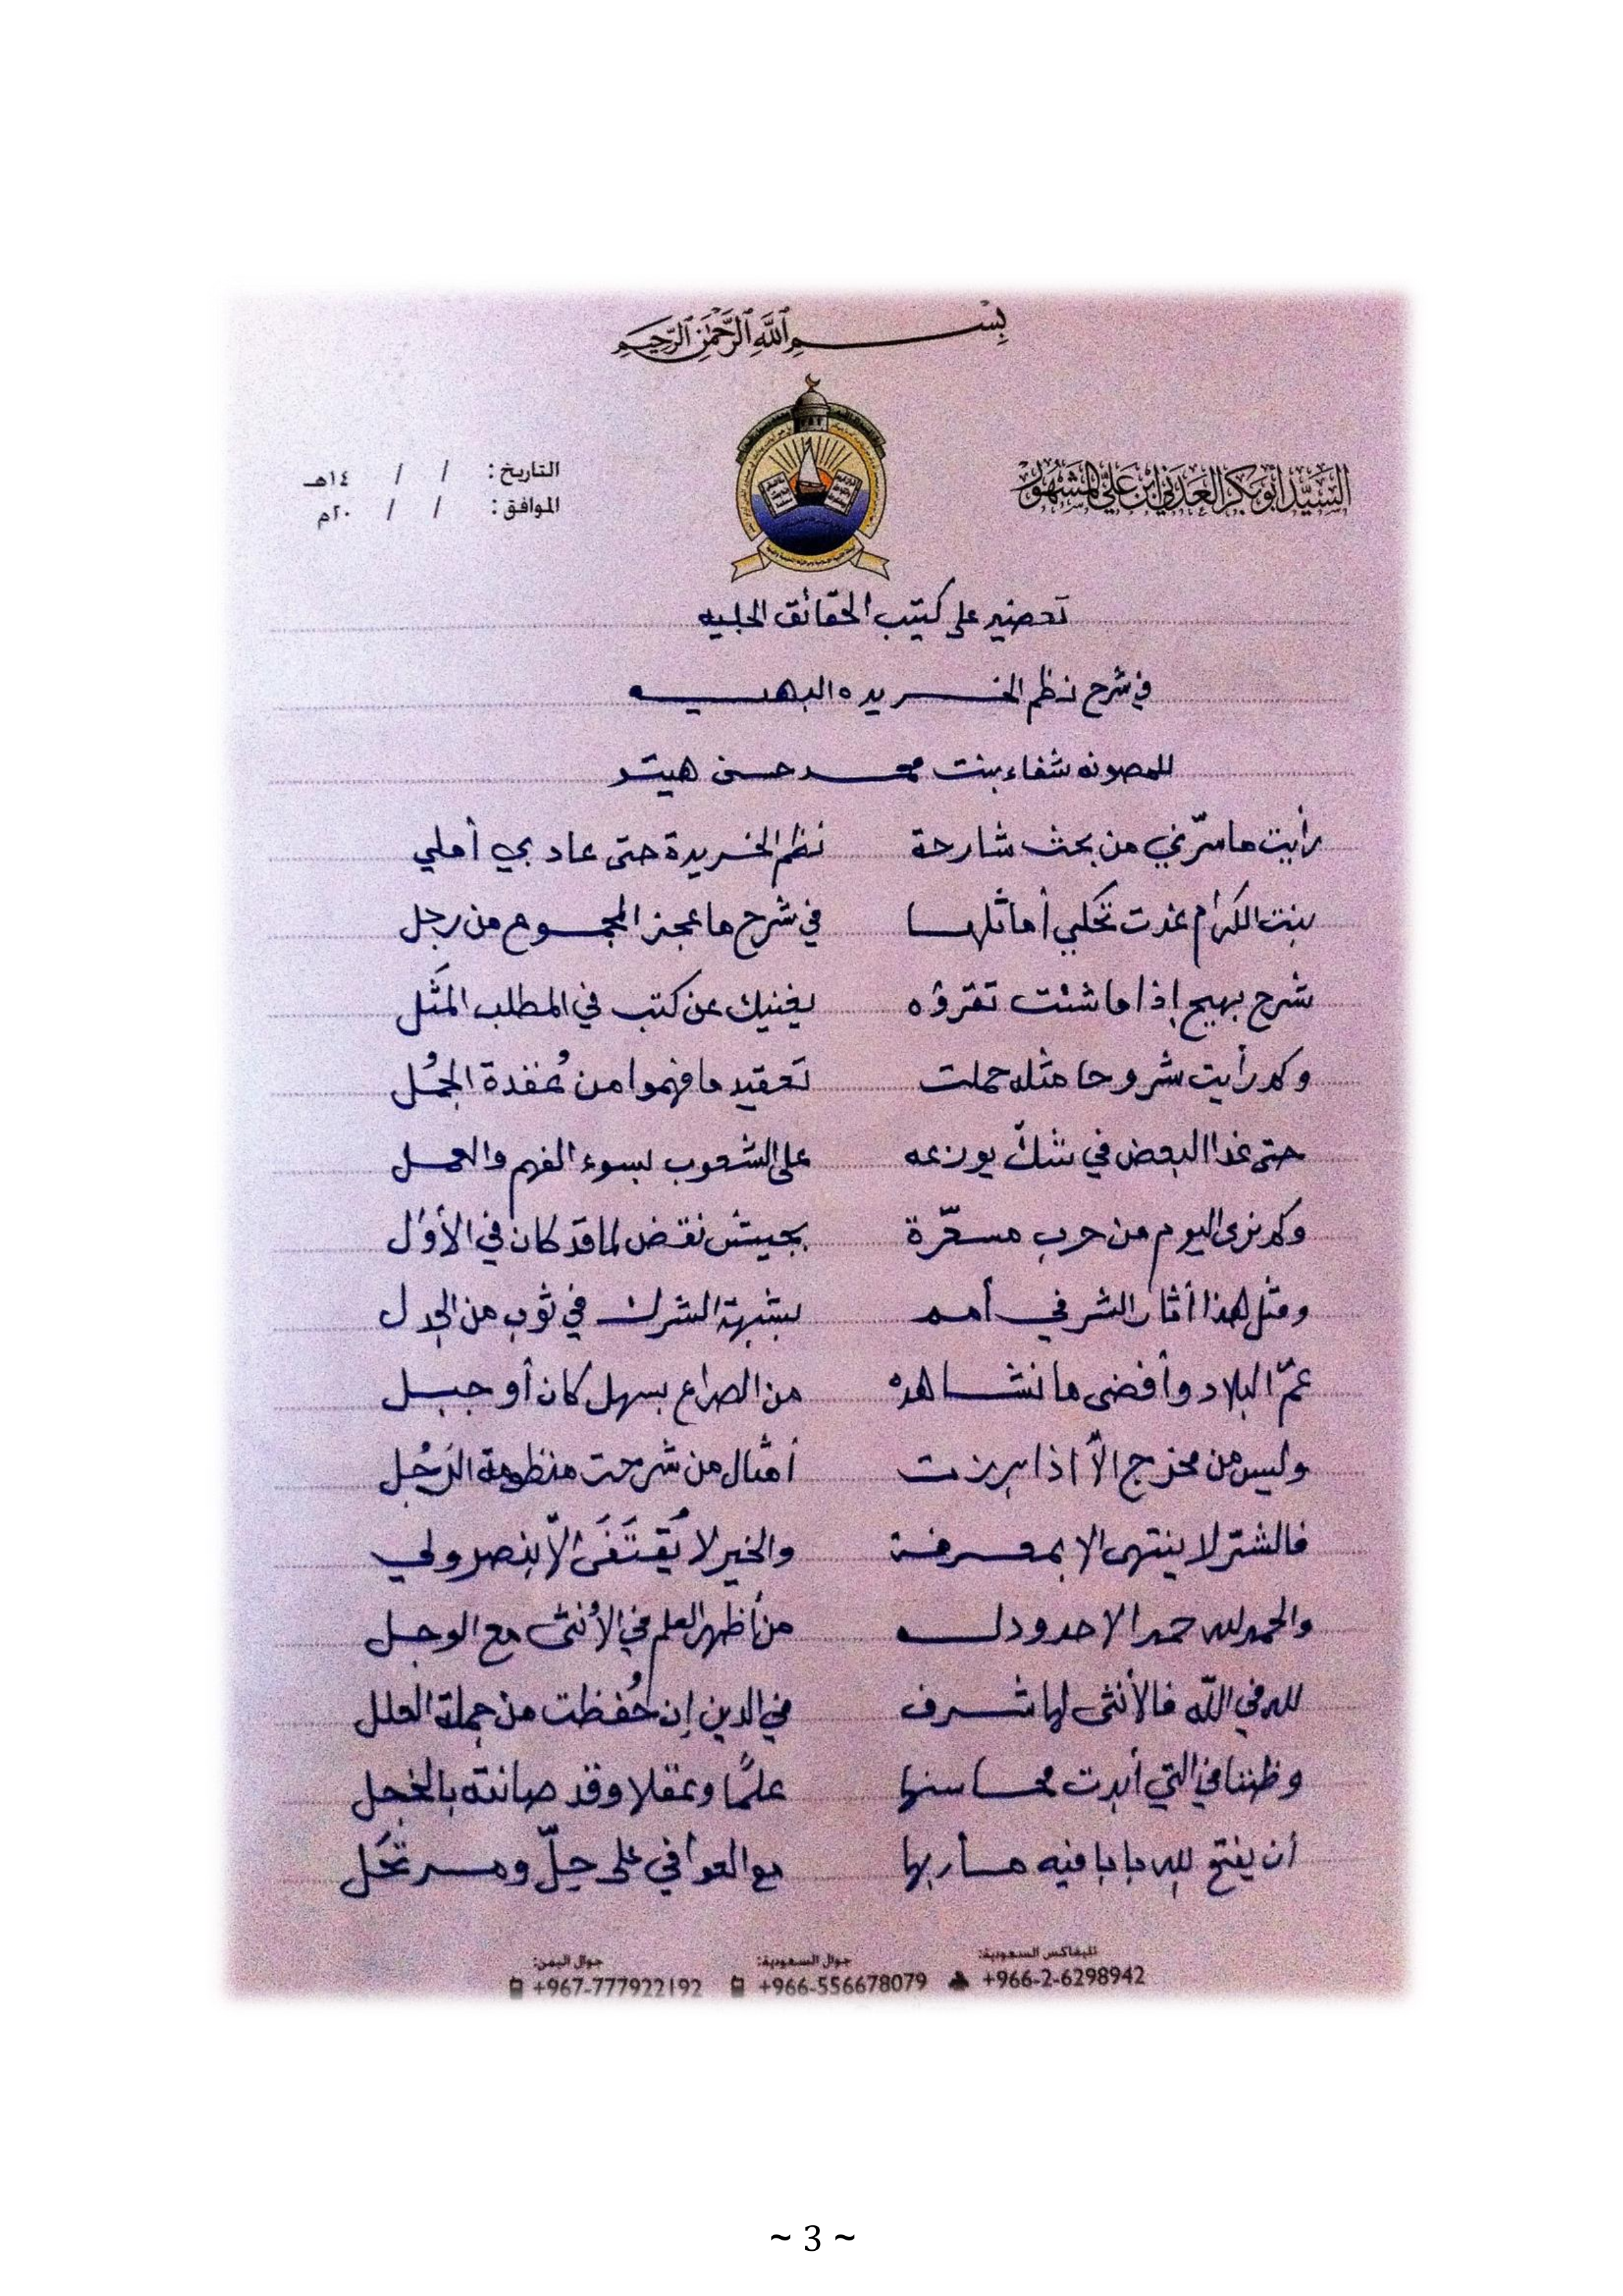 بِسْمِ اللَّهِ الرَّحْمَٰنِ الرَّحِيمِ
السيد أبوبكر العدني ابن علي المشهور
التاريخ: / / ١٤هـ
الموافق: / / ٢٠م
على كتيب الحقائق الجليه
في شرح نظم الخريده البهيه
للمصونه شفاء بنت محمد حسن هيتو
رأيت ما سرّني من بحث شارحة نظم الخريدة حتى عاد بي أملي
بنت الكرام غدت تحكي أماثلها في شرح ما عجز المجموع من رجل
شرح بهيج إذا ما شئت تقرؤه يغنيك عن كتب في المطلب المَثَل
وكم رأيت شروحا مثله حملت تعقيد ما فهموا من عُقدة الجُمُل
حتى غدا البعض في شكّ يوزعه على الشعوب بسوء الفهم والعمل
وكم نرى اليوم من حرب مسعّرة بجيش نقض لما قد كان في الأُوَل
ومثل هذا أثار الشر في أمم بشبهة الشرك في ثوب من الجدل
عمّ البلاد وأفضى ما نشاهده من الصراع بسهل كان أو جبل
وليس من مخرج الاّ اذا برزت أمثال من شرحت منظومة الرَجُل
فالشرّ لا ينتهي الا بمعرفة والخير لا يُقتَفَى الاّ بنصر ولي
والحمد لله حمدا لا حدود له من أظهر العلم في الأنثى مع الوجل
لله في الله فالأنثى لها شرف في الدين إن حُفظت من جملة العلل
وظننا في التي أبدت محاسنها علمًا وعقلا وقد صانته بالخجل
أن يفتح لله بابا فيه مأربها مع العوافي على حِلّ ومرتحَل
تليفاكس السعودية: +966-2-6298942
جوال السعودية: +966-556678079
جوال اليمن: +967-777922192
~ 3 ~